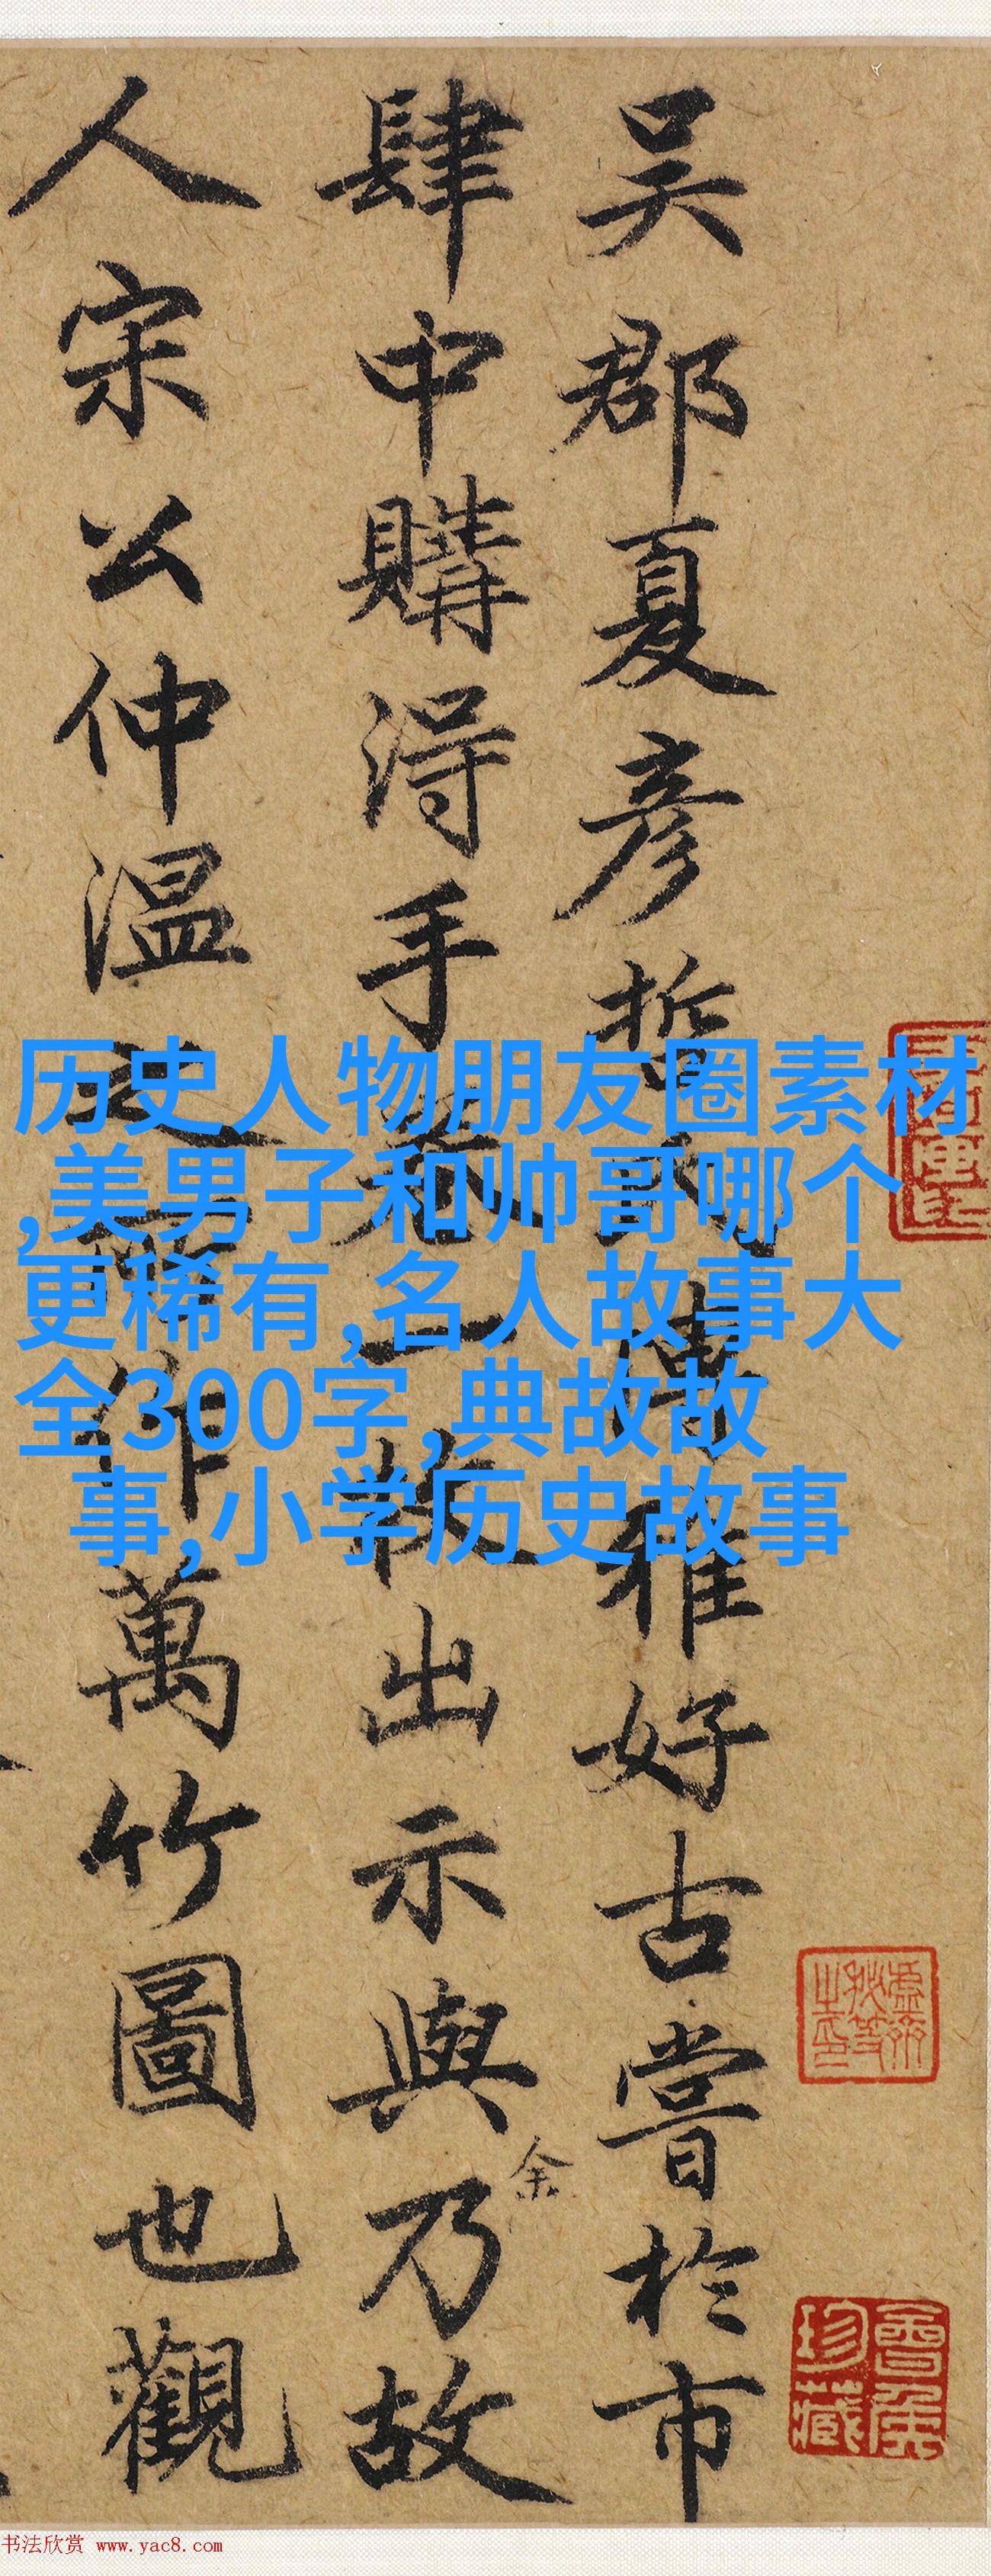 吴郡夏彦哲氏博雅好古嘗於市
肆中購得手卷一枚出示與乃故
余
人宋公仲温之所作萬竹圖也觀
历史人物朋友圈素材
,美男子和帅哥哪个
更稀有,名人故事大
全300字,典故故
事,小学历史故事
珍藏
书法欣赏 www.yac8.com